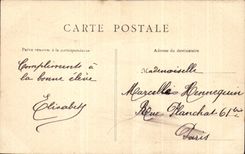 CARTE POSTALE
Partie réservée à la correspondance
Adresse du destinataire
Compliments à
la bonne élève
Elisabeth
Mademoiselle
Marcelle Hennequin
Rue Planchat 61bis
Paris